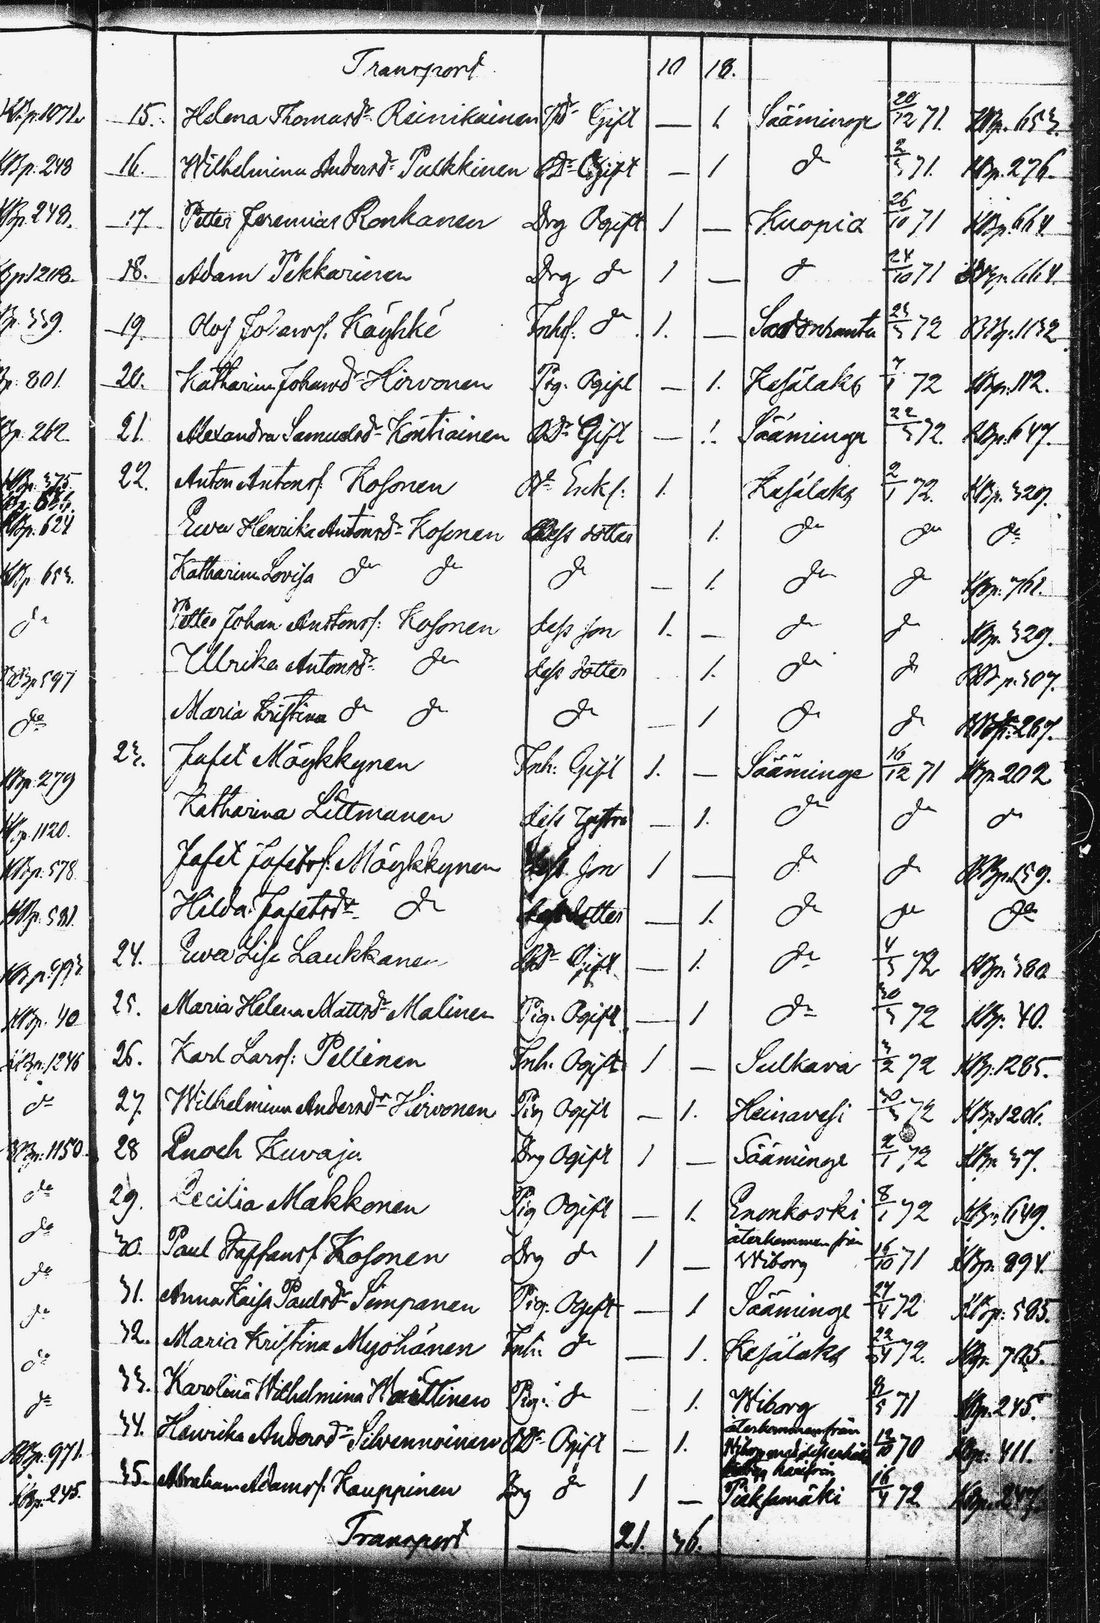 Transport 10 18.
KBp. 1071. 15. Helena Thomasdr Reinikainen Gift — 1. Sääminge 20/12 71. KBp. 653.
KBp. 248 16. Wilhelmina Andersdr Pulkkinen Gift — 1 do 71. KBp. 276.
KBp. 248. 17. Petter Jeremias Ronkanen Drg Ogift 1 — Kuopio 26/10 71 KBp. 664.
KBp. 1208. 18. Adam Pekkarinen Drg do 1 — do 24/10 71 KBp. 664.
KBp. 339. 19. Inhs. do 1. — 72 KBp. 1132.
KBp. 801. 20. Katharina Johansdr Hirvonen Pig. Ogift — 1. Kesälaks 7/1 72 KBp. 112.
KBp. 262. 21. Alexandra Samuelsdr Kontiainen Gift — 1. Sääminge 72. KBp. 647.
KBp. 375. 22. Anton Antons. Kosonen Enkl. 1. Kesälaks 2/1 72. KBp. 329.
KBp. 624 Ewa Henrika Antonsdr Kosonen dess dotter 1. do do do
KBp. 653. Katharina Lovisa do do do — 1. do do KBp. 761.
do Petter Johan Antons. Kosonen dess son 1. — do do KBp. 329.
KBp. 597 Ulrika Antonsdr do dess dotter 1. do do KBp. 307.
do Maria Kristina do do do — 1 do do KBp. 267.
KBp. 279 23. Jafet Möykkynen Inh. Gift 1. — Sääminge 16/12 71 KBp. 202
KBp. 1120. Katharina Littmanen dess hustru — 1. do do do
KBp. 578 Jafet Jafets. Möykkynen dess son 1 — do do KBp. 159.
KBp. 581. Hilda Jafetsdr do dess dotter — 1. do do do
KBp. 993 24. Ewa Lisa Laukkanen Gift — 1. do 72 KBp. 380
KBp. 40 25. Maria Helena Mattsdr Malinen Pig. Ogift — 1 do 72 KBp. 40.
KBp. 1246 26. Karl Lars. Pellinen Inh. Ogift 1 — Sulkava 3/2 72 KBp. 1285.
do 27. Wilhelmina Andersdr Hirvonen Pig Ogift — 1. Heinavesi 72 KBp. 1206.
KBp. 1150 28 Enoch Kuvaja Drg Ogift 1 — Sääminge 2/1 72 KBp. 37.
do 29. Cecilia Makkonen Pig Ogift — 1. Enonkoski 8/1 72 KBp. 649.
do 30. Paul Staffans. Kosonen Drg do 1 — återkommen från Wiborg 16/10 71 KBp. 894.
do 31. Anna Kaisa Paulsdr Simpanen Pig. Ogift — 1 Sääminge 27/4 72 KBp. 595.
do 32. Maria Kristina Myöhänen Inh. do — 1. Kesälaks 72. KBp. 725.
do 33. Karolina Wilhelmina Pig. do — 1. Wiborg 8/5 71 KBp. 245.
do 34. Henrika Andersdr Silvennoinen Ogift — 1. återkommen från 12/10 70 KBp. 411.
KBp. 971.
KBp. 245. 35. Abraham Adams. Kauppinen Drg do 1 — Pieksämäki 16/4 72 KBp. 247.
Transport — 21. 36.